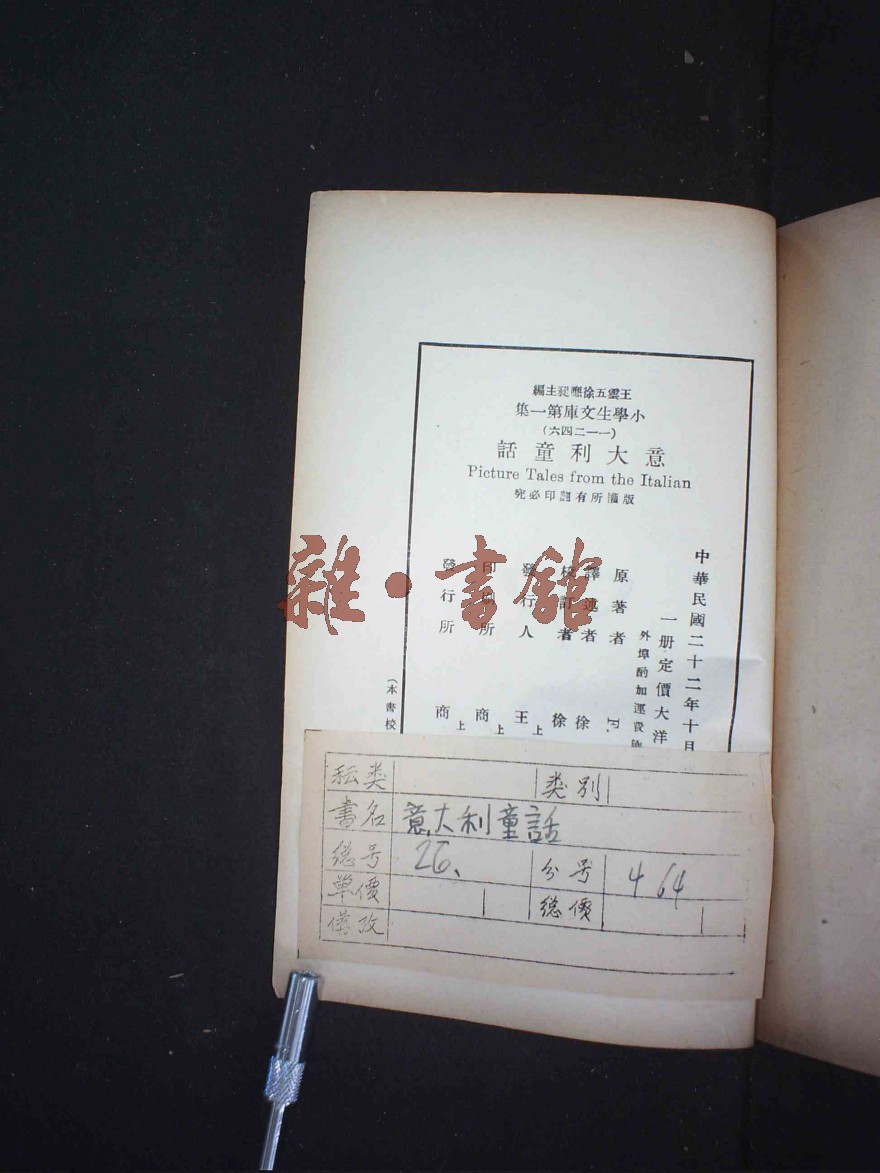 王雲五徐應昶主編
小學生文庫第一集
(一一二四六)
意大利童話
Picture Tales from the Italian
版權所有翻印必究
中華民國二十二年十月
一册定價大洋
外埠酌加運費
原著者 F.
譯述者 徐
校訂者 徐
發行人 王 上
印刷所 商 上
發行所 商 上
(本書校
雜·書館
种类 类别
書名 意大利童話
總号 26、 分号 464
單價 總價
備攷